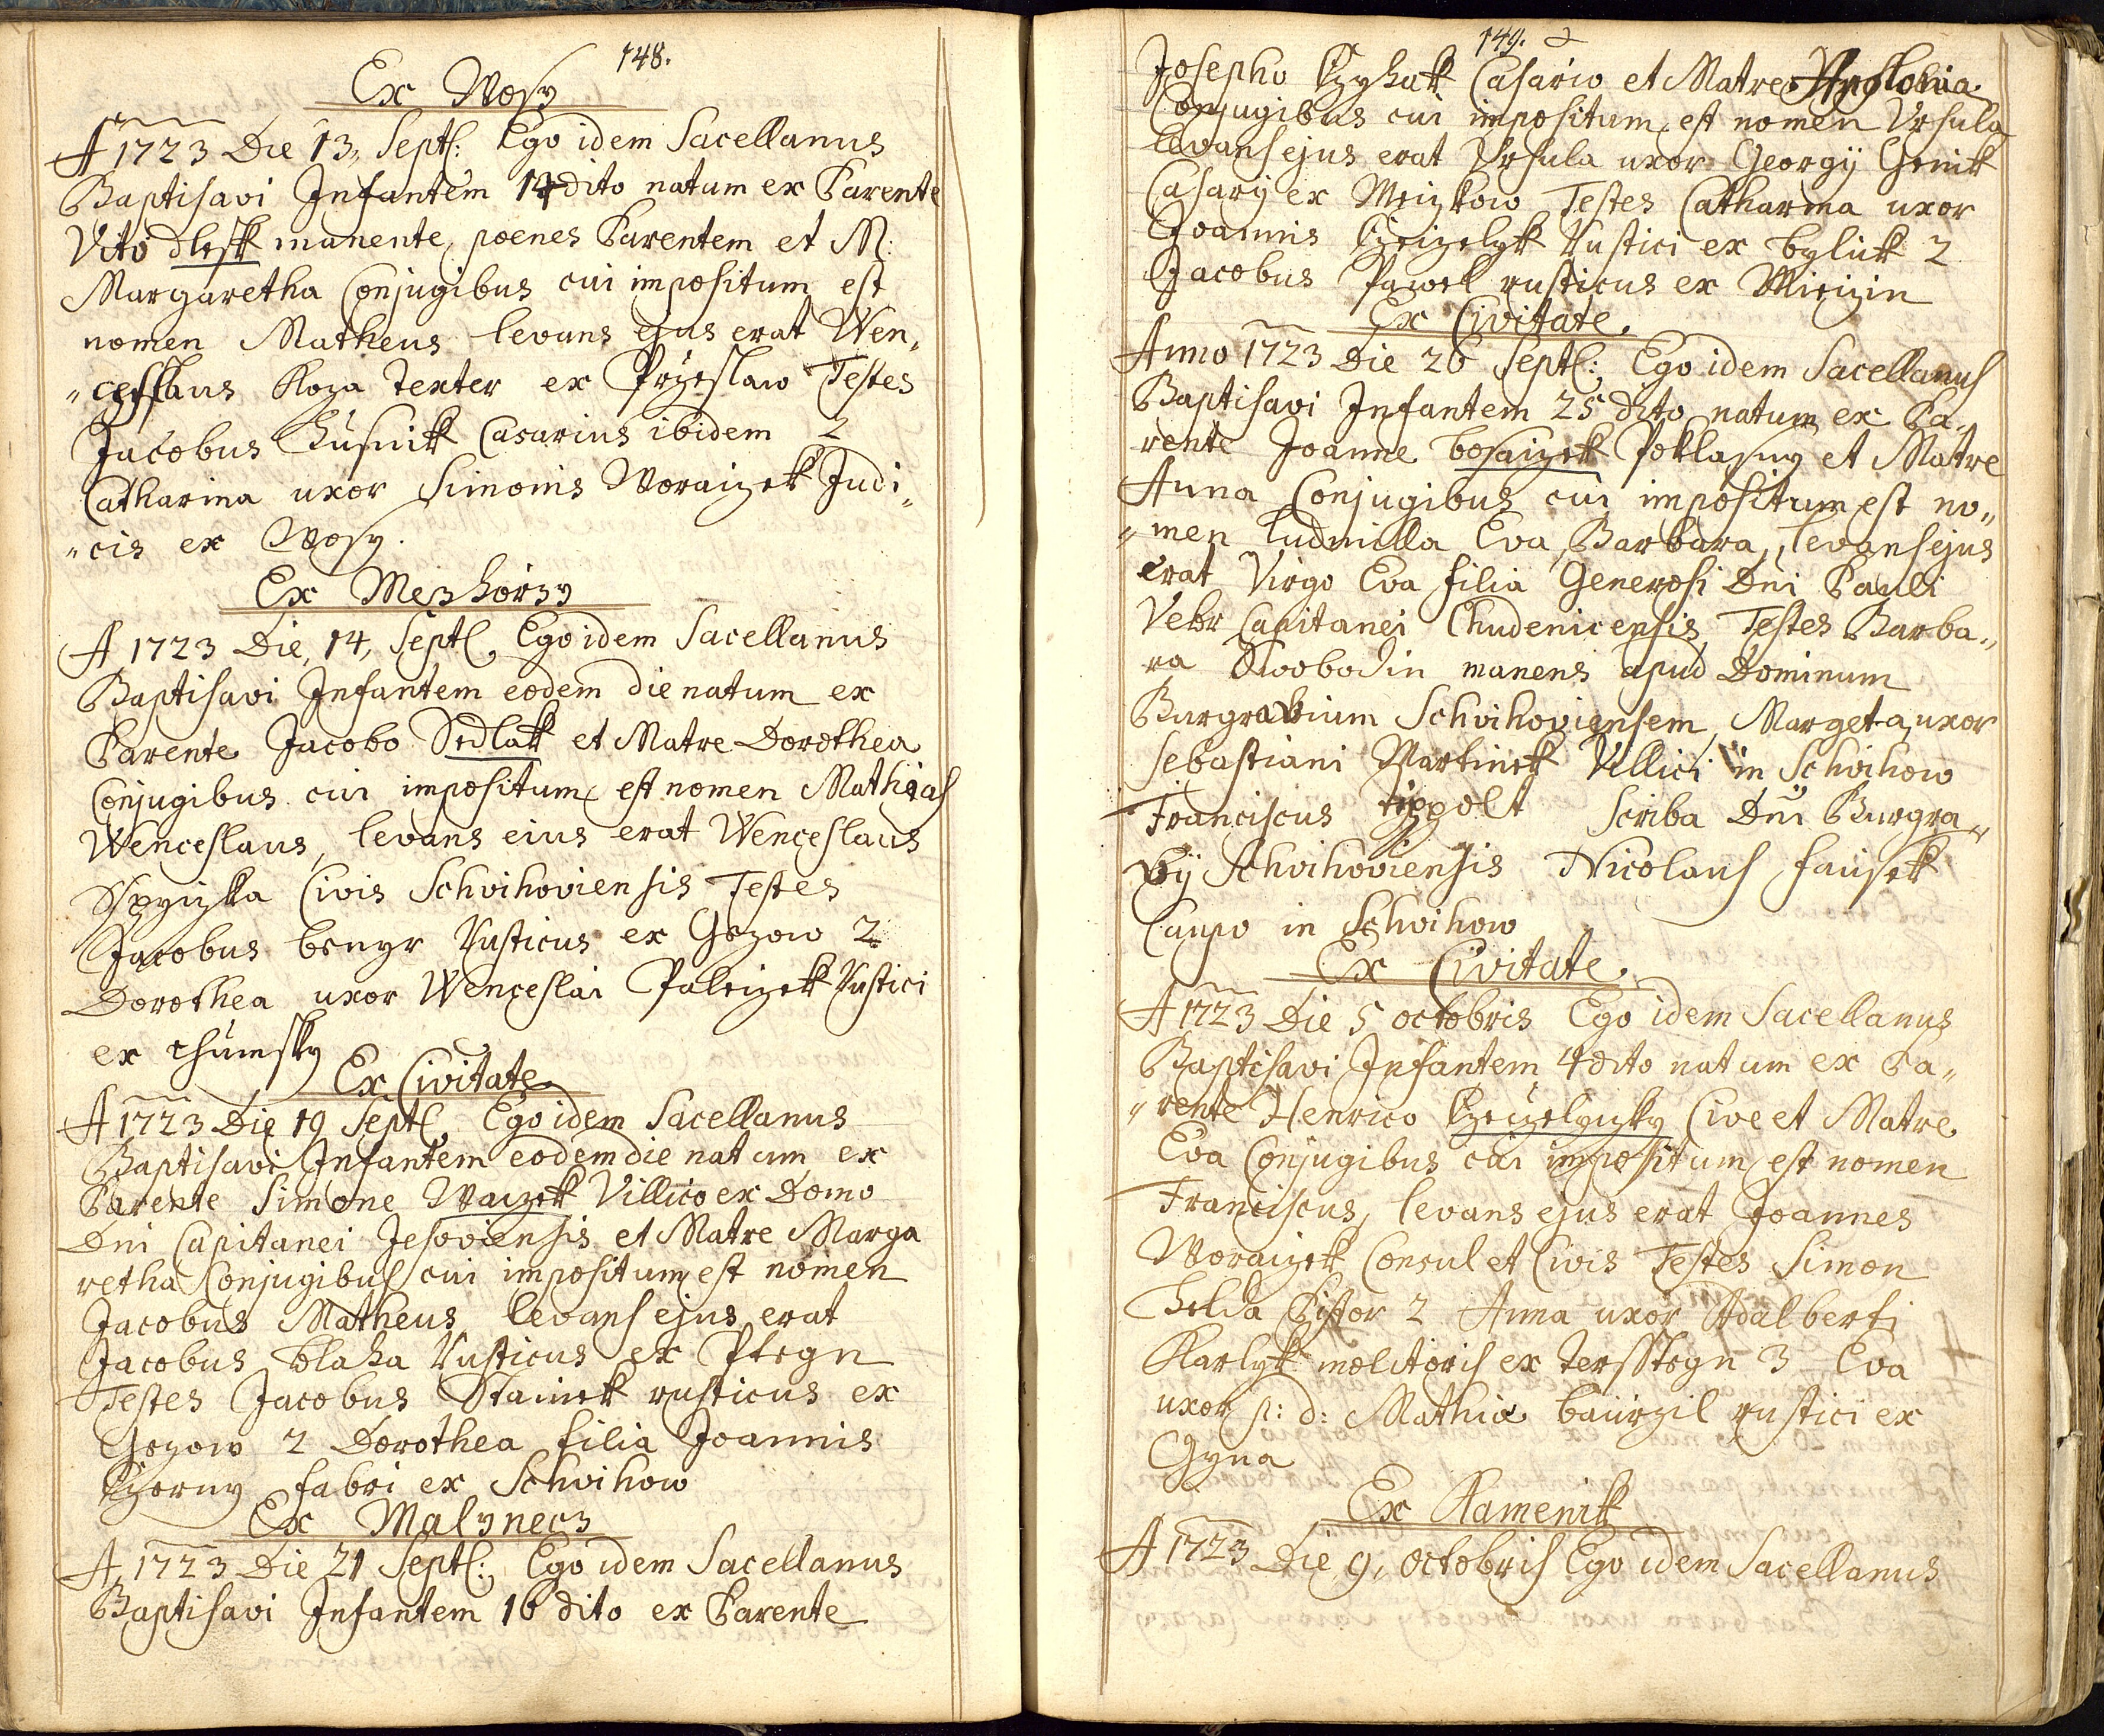 148.
Ex Wosy
A 1723 Die 13, Septl: Ego idem Sacellanus
Baptisavi Infantem 14 dito natum ex Parente
Vito dlesk manente poenes Parentem et M:
Margaretha Conjugibus cui impositum est
nomen Matheus levans ejus erat Wen„
„ceslaus Koza Texter ex Przeslaw Testes
Jacobus Husnik Casarius ibidem 2
Catharina uxor Simonis Woraizek Judi„
„cis ex Wosy.
Ex Mezhorzy
A 1723 Die, 14, Septl, Ego idem Sacellanus
Baptisavi Infantem eodem die natum ex
Parente Jacobo Sedlak et Matre Dorothea
Conjugibus cui impositum est nomen Mathias
Wenceslaus, levans eius erat Wenceslaus
Civis Schvihoviensis Testes
Jacobus benyr Rusticus ex Gezow 2
Dorothea uxor Wenceslai Paleizek Rustici
ex chumsky
Ex Civitate
A 1723 Die 19 Septl, Ego idem Sacellanus
Baptisavi Infantem eodem die natum ex
Parente Simone Waczek Villico ex Domo
Dni Capitanei Jesoviensis et Matre Marga
retha Conjugibus cui impositum est nomen
Jacobus Matheus levans ejus erat
Jacobus blaha Rusticus ex Ptegn
Testes Jacobus Stainek rusticus ex
Gezow 2 Dorothea filia Joannis
Czerny fabri ex Schvihow
Ex Malynecz
A 1723 Die 21 Septl: Ego idem Sacellanus
Baptisavi Infantem 16 dito ex Parente
149.
Josepho Czyhak Casario et Matre Apolonia
Conjugibus cui impositum est nomen Ursula
levans ejus erat Ursula uxor Georgij Genik
Casarij ex Mezkow Testes Catharina uxor
Joannis Czeizelyk Rustici ex byluk 2
Jacobus Pawel rusticus ex Miczin
Ex Civitate
Anno 1723 Die 26 Septl: Ego idem Sacellanus
Baptisavi Infantem 25 dito natum ex Pa„
rente Joanne bosaizek Poklasny et Matre
Anna Conjugibus cui impositum est no„
„men Ludmilla Eva Barbara, levans ejus
erat Virgo Eva filia Generosi Dni Pauli
Vehr Capitanei Chudenicensis Testes Barba„
ra Swobodin manens apud Dominum
Burgrabium Schvihoviensem, Margeta uxor
Sebastiani Martinek Villici in Schvihow
Franciscus tippolt Scriba Dni Burgra„
bij Schvihoviensis Nicolaus fausek
Caupo in Schvihow
Ex Civitate
A 1723 Die 5 octobris Ego idem Sacellanus
Baptisavi Infantem 4 dito natum ex Pa„
„rente Henrico Czeizelyzky Cive et Matre
Eva Conjugibus cui impositum est nomen
Franciscus, levans ejus erat Joannes
Woraizek Consul et Civis Testes Simon
Pistor 2 Anna uxor Adalberti
Karlyk molitoris ex Tersstegn 3 Eva
uxor p: d: Mathiae baurzil rustici ex
Gyna
Ex Kamenik
A 1723 Die 9, octobris Ego idem Sacellanus